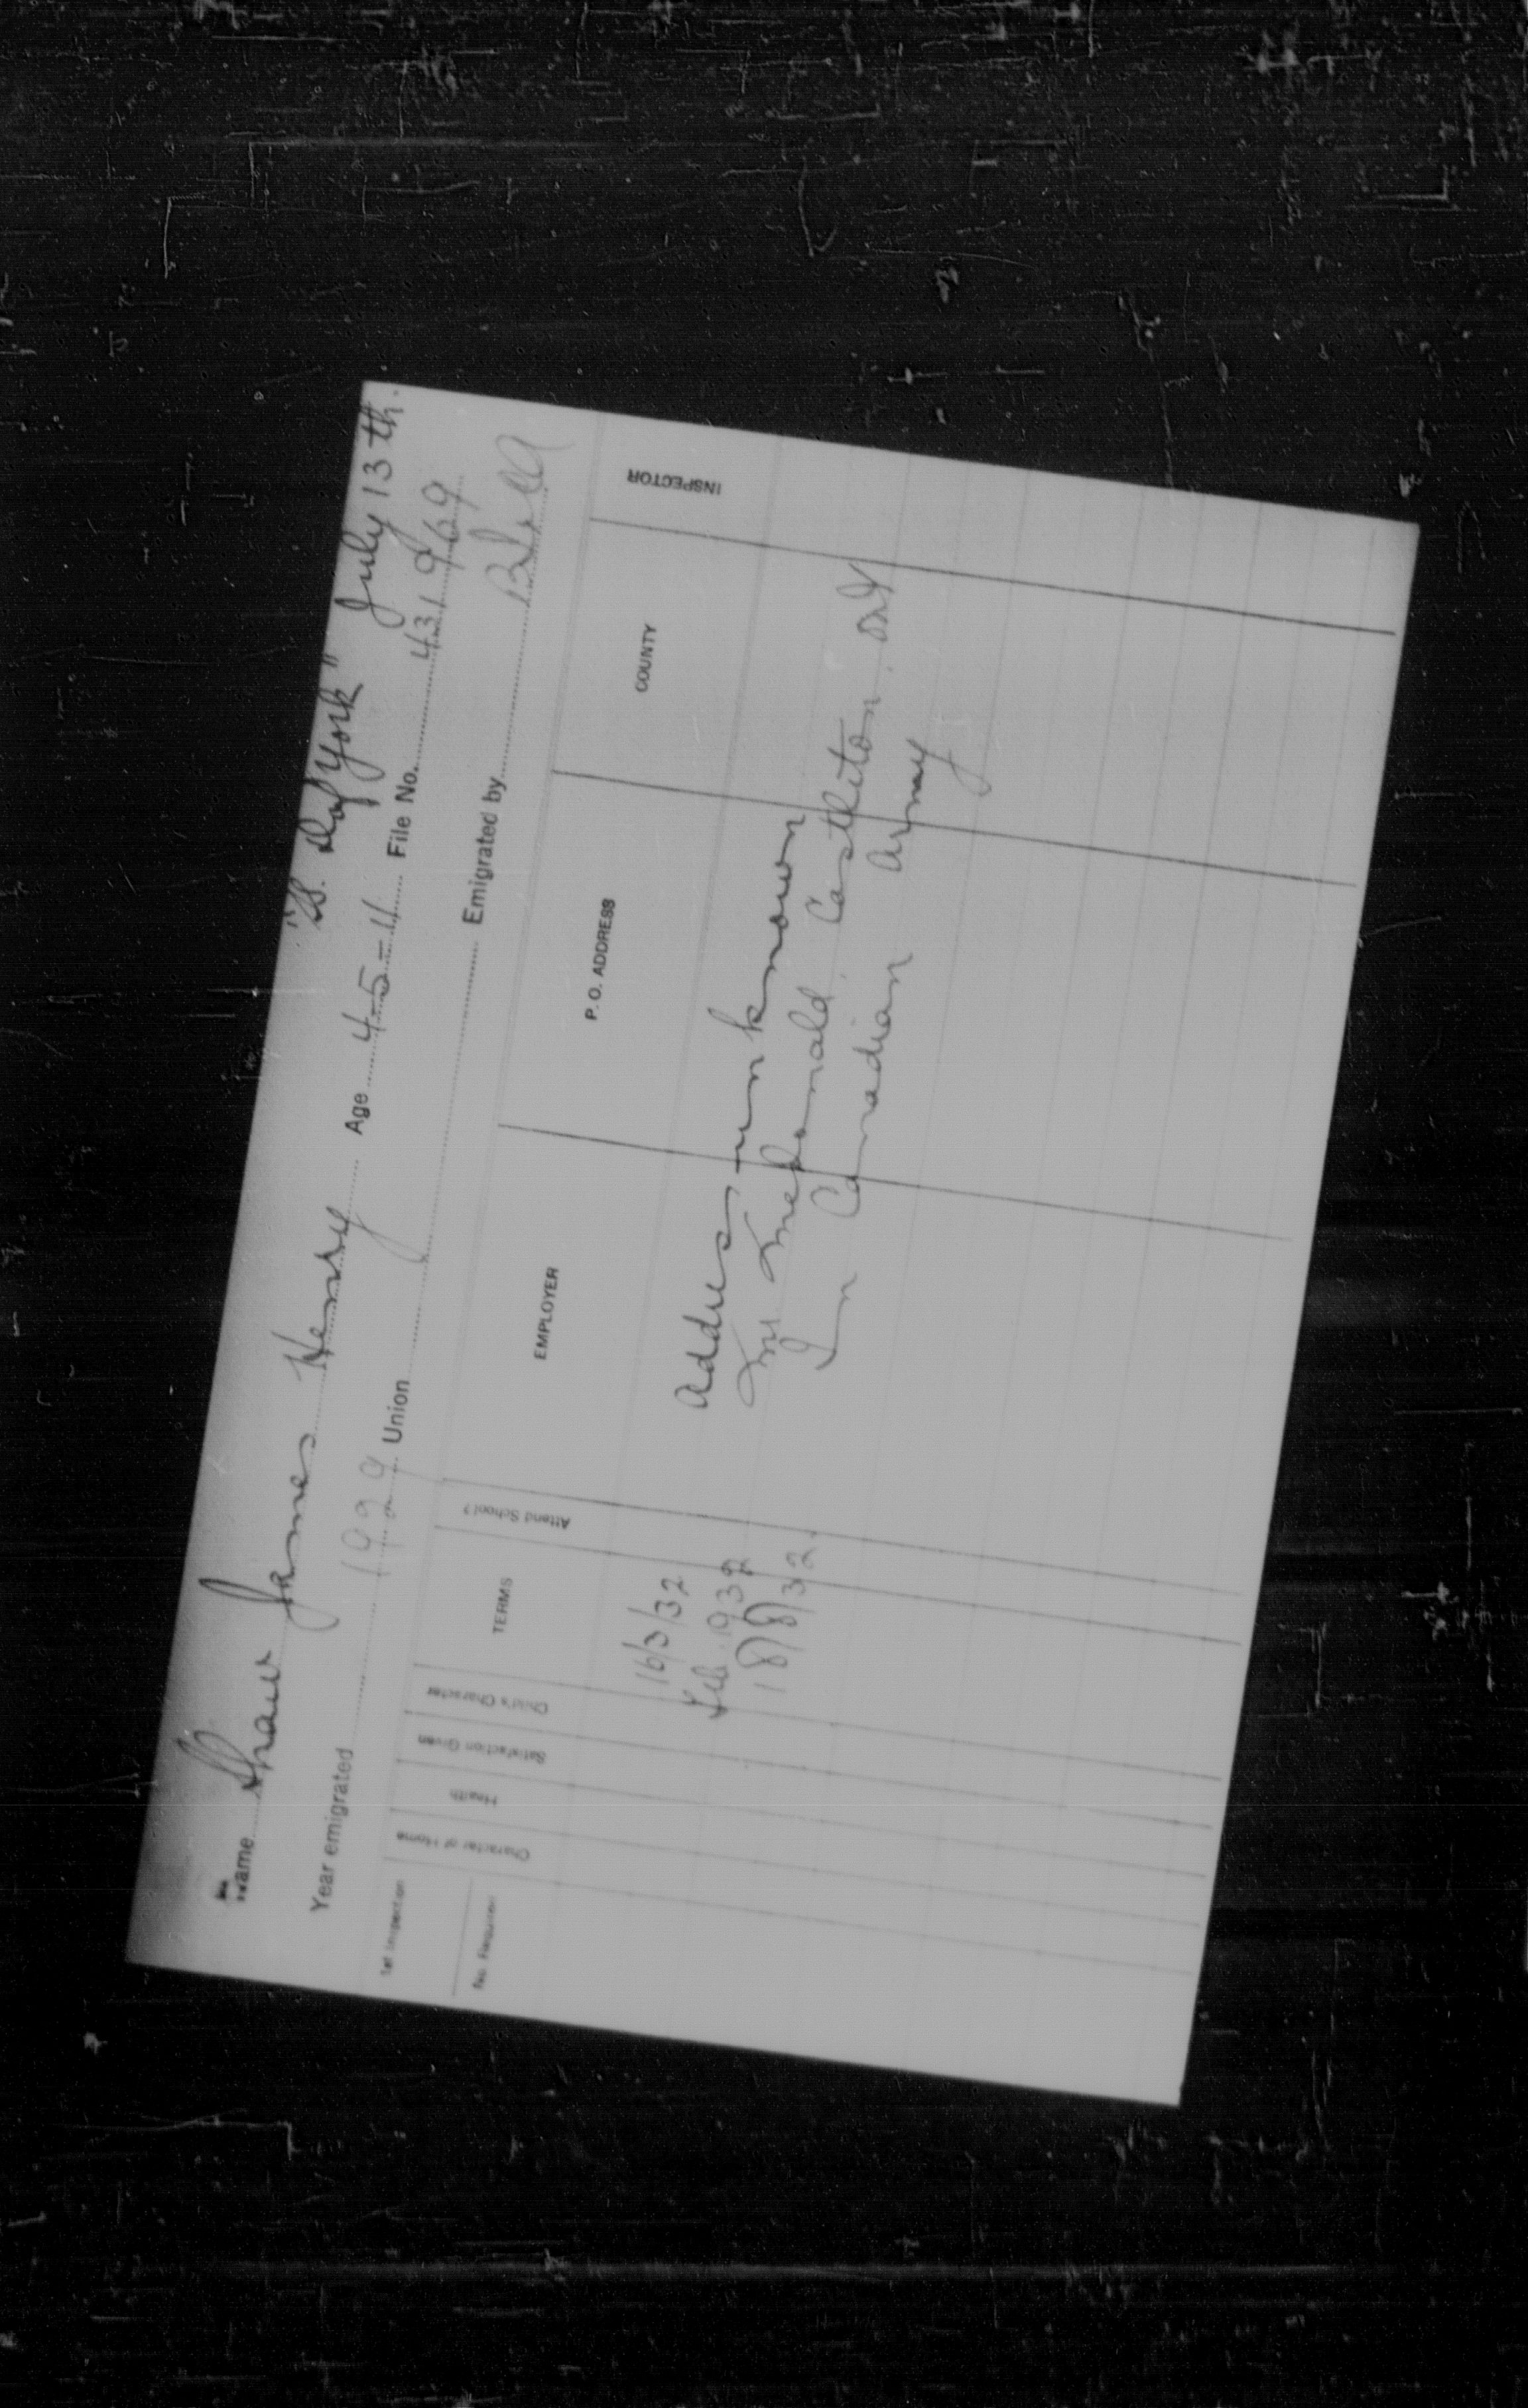 "S. D of York" July 13th.
Name Shaw James Henry Age 45-11 File No. 431969
Year emigrated 1929 Union Emigrated by
1st Inspection
No. Required
Character of Home
Health
Satisfaction Given
Child's Character
TERMS
Attend School?
EMPLOYER
P. O. ADDRESS
COUNTY
INSPECTOR
16/3/32 Address unknown
Feb. 1932 Mr McDonald, Castleton, Ont
18/8/32. In Canadian Army